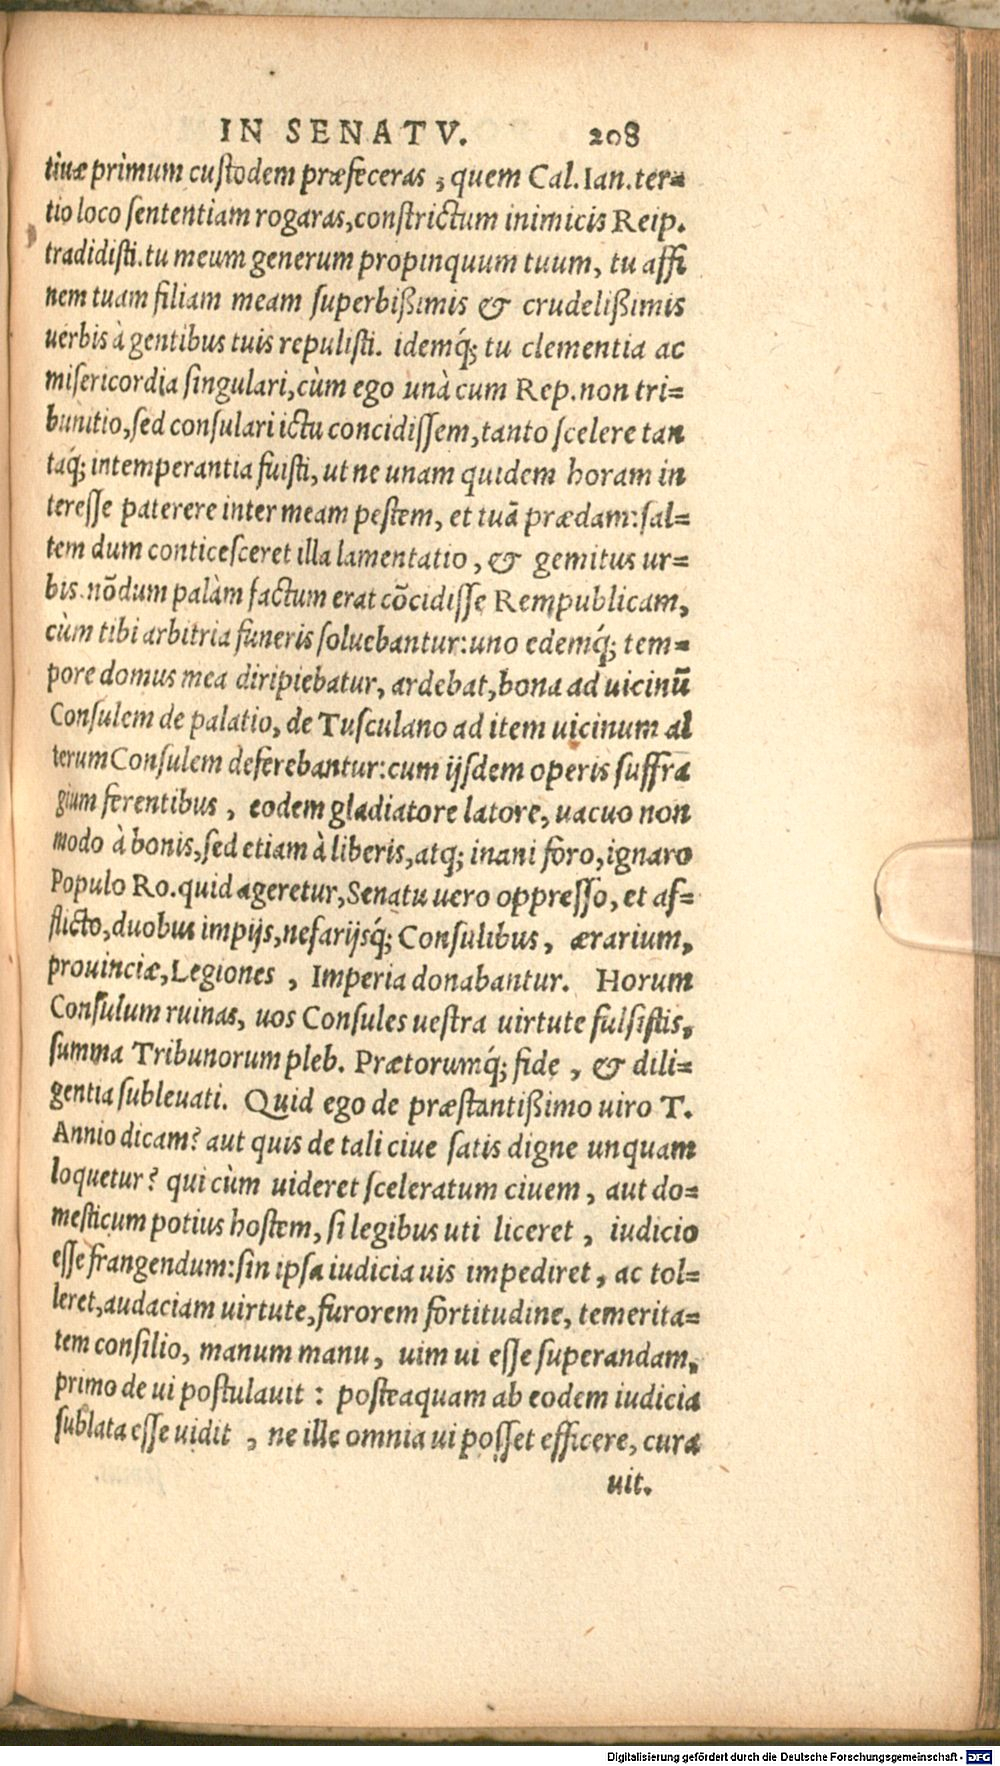 IN SENATV. 208
tiuæ primum custodem præfeceras, quem Cal. Ian. ter=
tio loco sententiam rogaras, constrictum inimicis Reip.
tradidisti. tu meum generum propinquum tuum, tu affi
nem tuam filiam meam superbißimis & crudelißimis
uerbis à gentibus tuis repulisti. idemq́; tu clementia ac
misericordia singulari, cùm ego unà cum Rep. non tri=
bunitio, sed consulari ictu concidissem, tanto scelere tan
taq́; intemperantia fuisti, ut ne unam quidem horam in
teresse paterere inter meam pestem, et tuā prædam: sal=
tem dum conticesceret illa lamentatio, & gemitus ur=
bis. nōdum palàm factum erat cōcidisse Rempublicam,
cùm tibi arbitria funeris soluebantur: uno edemq́; tem=
pore domus mea diripiebatur, ardebat, bona ad uicinū
Consulem de palatio, de Tusculano ad item uicinum al
terum Consulem deferebantur: cum ijsdem operis suffra
gium ferentibus, eodem gladiatore latore, uacuo non
modo à bonis, sed etiam à liberis, atq; inani foro, ignaro
Populo Ro. quid ageretur, Senatu uero oppresso, et af=
flicto, duobus impijs, nefarijsq́; Consulibus, ærarium,
prouinciæ, Legiones, Imperia donabantur. Horum
Consulum ruinas, uos Consules uestra uirtute fulsistis,
summa Tribunorum pleb. Prætorumq́; fide, & dili=
gentia subleuati. Quid ego de præstantißimo uiro T.
Annio dicam? aut quis de tali ciue satis digne unquam
loquetur? qui cùm uideret sceleratum ciuem, aut do=
mesticum potius hostem, si legibus uti liceret, iudicio
esse frangendum: sin ipsa iudicia uis impediret, ac tol=
leret, audaciam uirtute, furorem fortitudine, temerita=
tem consilio, manum manu, uim ui esse superandam,
primo de ui postulauit: posteaquam ab eodem iudicia
sublata esse uidit, ne ille omnia ui posset efficere, cura
uit.
Digitalisierung gefördert durch die Deutsche Forschungsgemeinschaft - DFG